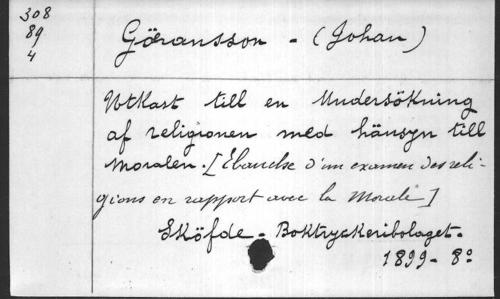 308
89
4
Göransson - (Johan)
Utkast till en Undersökning
af religionen med hänsyn till
moralen. [Ebauche d'un examen des reli-
gions en rapport avec la Morale]
Sköfde - Boktryckeribolaget -
1899 - 8º